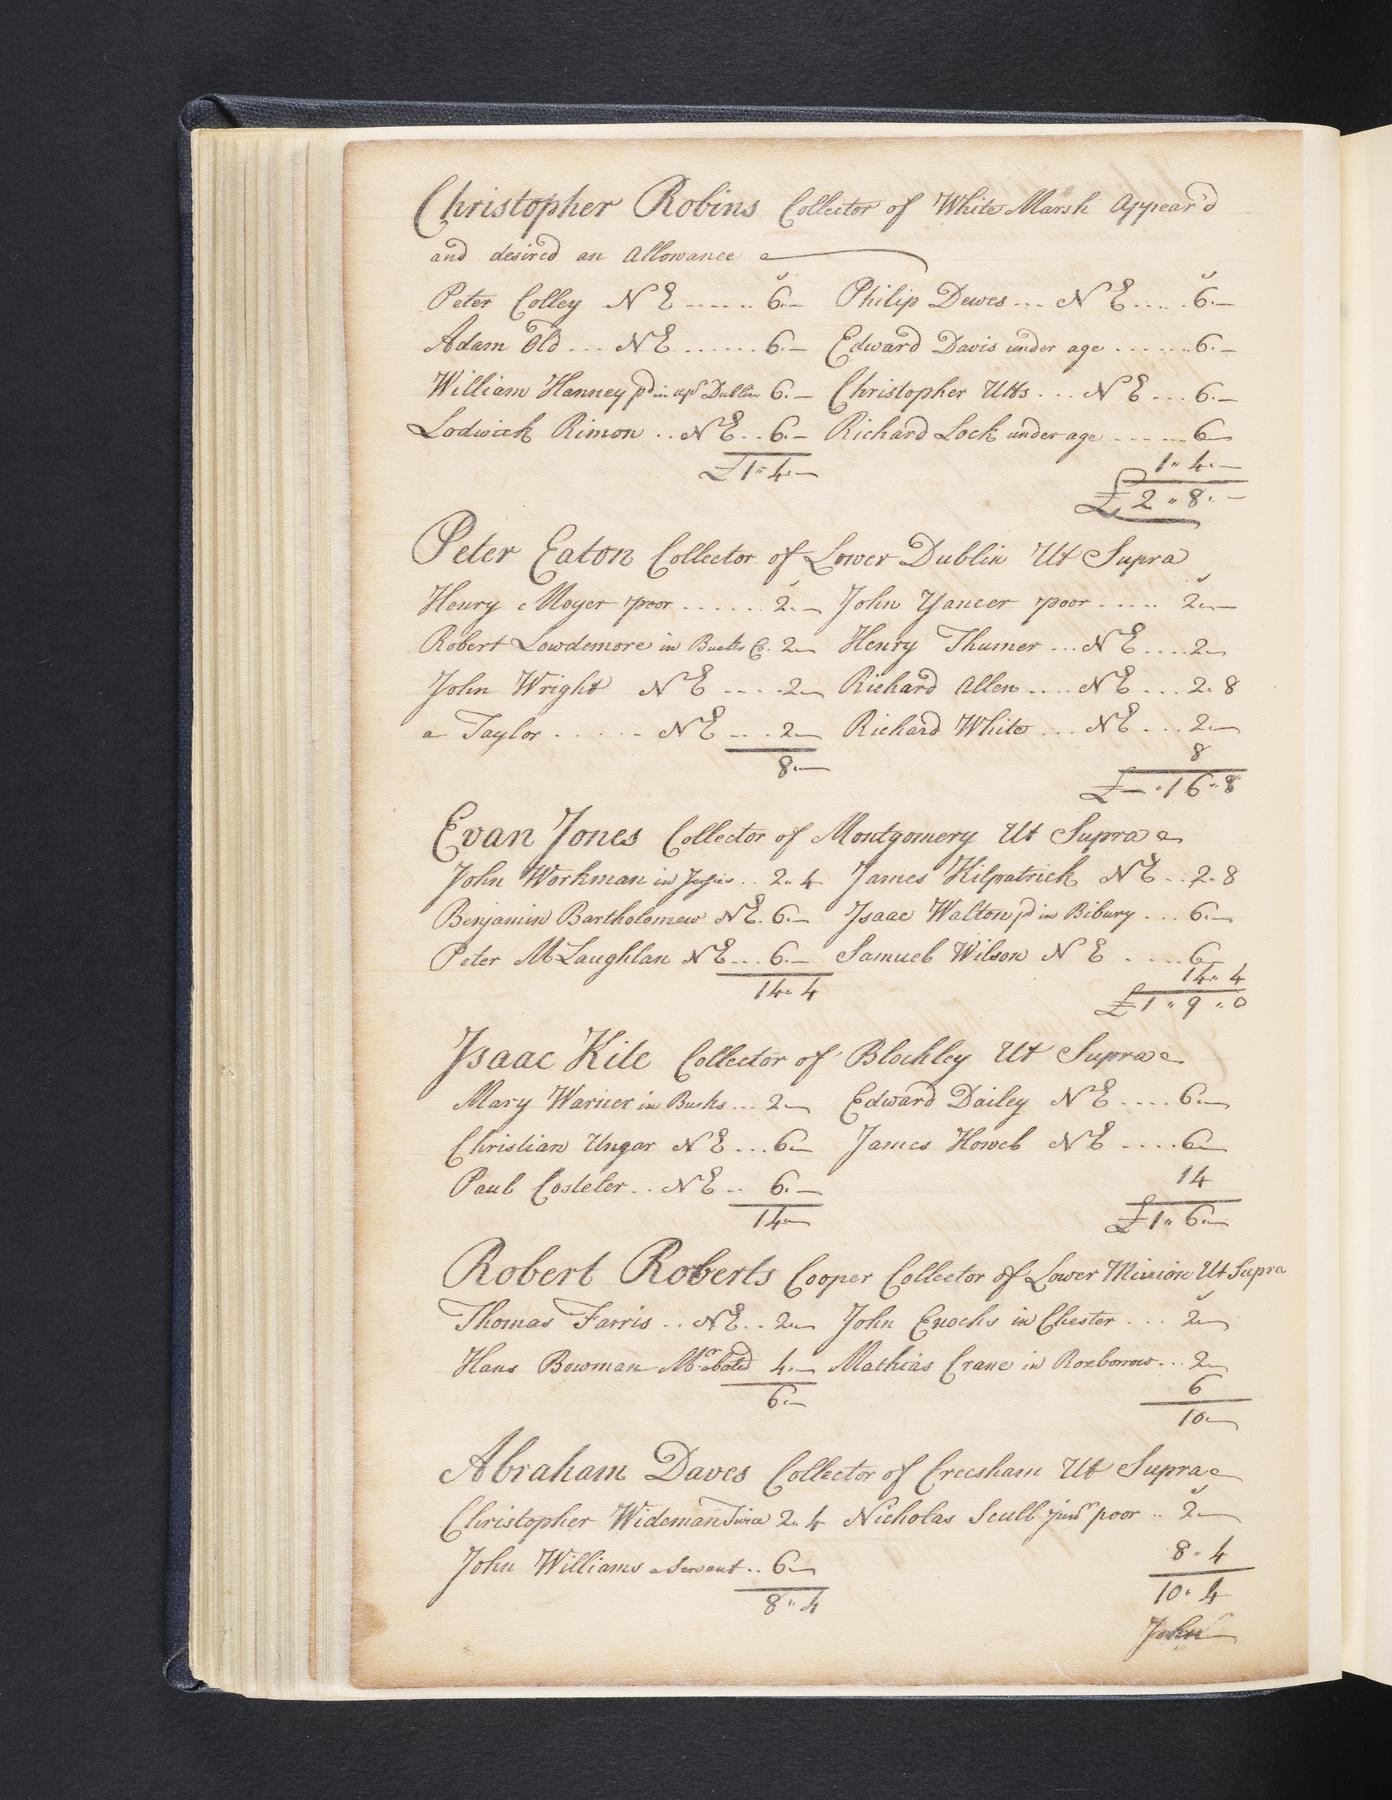 Christopher Robins Collector of White Marsh Appear'd
and desired an Allowance
Peter Colley N E ....... 6.— Philip Dewes ... N E ..... 6.—
Adam Old ... N E ...... 6.— Edward Davis under age ....... 6.—
William Hanney pd in upr Dublin 6.— Christopher Utts ... N E ... 6.—
Lodwick Rimon .. N E .. 6.— Richard Lock under age ...... 6—
1" 4.—
£1" 4.—
£ 2 " 8.—
Peter Eaton Collector of Lower Dublin Ut Supra
Henry Moyer poor ...... 2.— John Yancer poor ..... 2.—
Robert Lowdemore in Bucks Co. 2— Henry Thumer ... N E .... 2—
John Wright N E .... 2— Richard Allen .... N E ... 2. 8
a Taylor ...... N E ... 2— Richard White ... N E ... 2—
8
8.—
£— " 16 " 8
Evan Jones Collector of Montgomery Ut Supra
John Workman in .. 2" 4 James Kilpatrick N E .. 2. 8
Benjamin Bartholomew N E. 6.— Isaac Walton pd in Bibury ... 6.—
Peter McLaughlan N E ... 6.— Samuel Wilson N E ..... 6—
14" 4
14" 4
£1 " 9 " 0
Isaac Kite Collector of Blockley Ut Supra
Mary Warner in Bucks ... 2— Edward Dailey N E .... 6—
Christian Ungar N E ... 6— James Howel N E .... 6—
Paul Costeler .. N E .. 6.—
14
14—
£1" 6.—
Robert Roberts Cooper Collector of Lower Mirrion Ut Supra
Thomas Farris .. N E .. 2— John Enochs in Chester ... 2—
Hans Bowman Mer abated 4.— Mathias Crane in Roxborrow ... 2—
6
6.—
10—
Abraham Daves Collector of Creesham Ut Supra
Christopher Wideman Twice 2" 4 Nicholas Scull junr poor .. 2—
John Williams a Servant .. 6—
8" 4
8" 4
10" 4
John